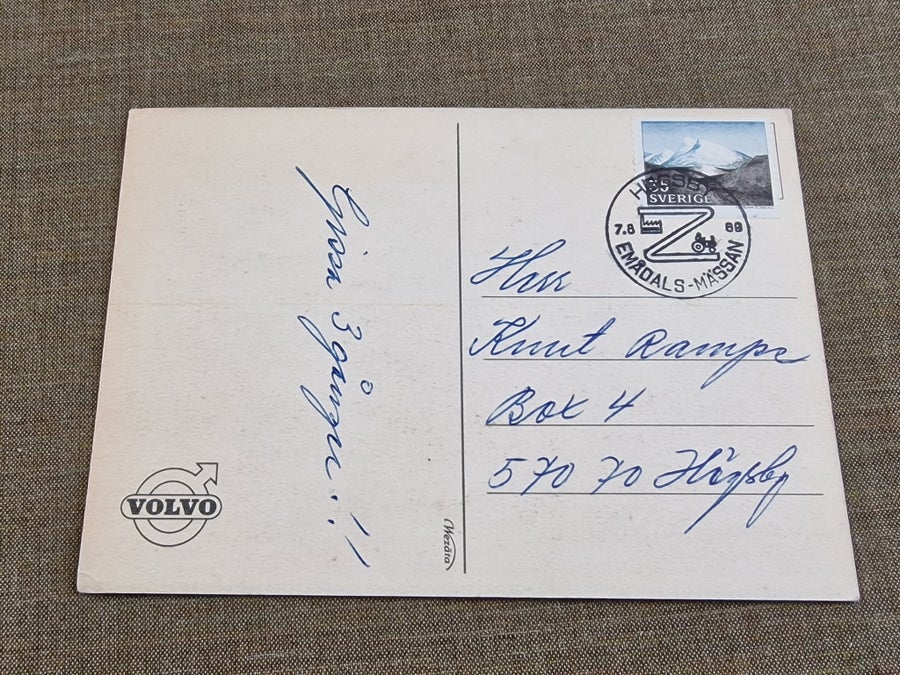 Gissa 3 gånger..!!
VOLVO
Wezäta
55
SVERIGE
HÖGSBY
7.8 69
EMÅDALS-MÄSSAN
Herr
Knut Rampe
Box 4
570 70 Högsby